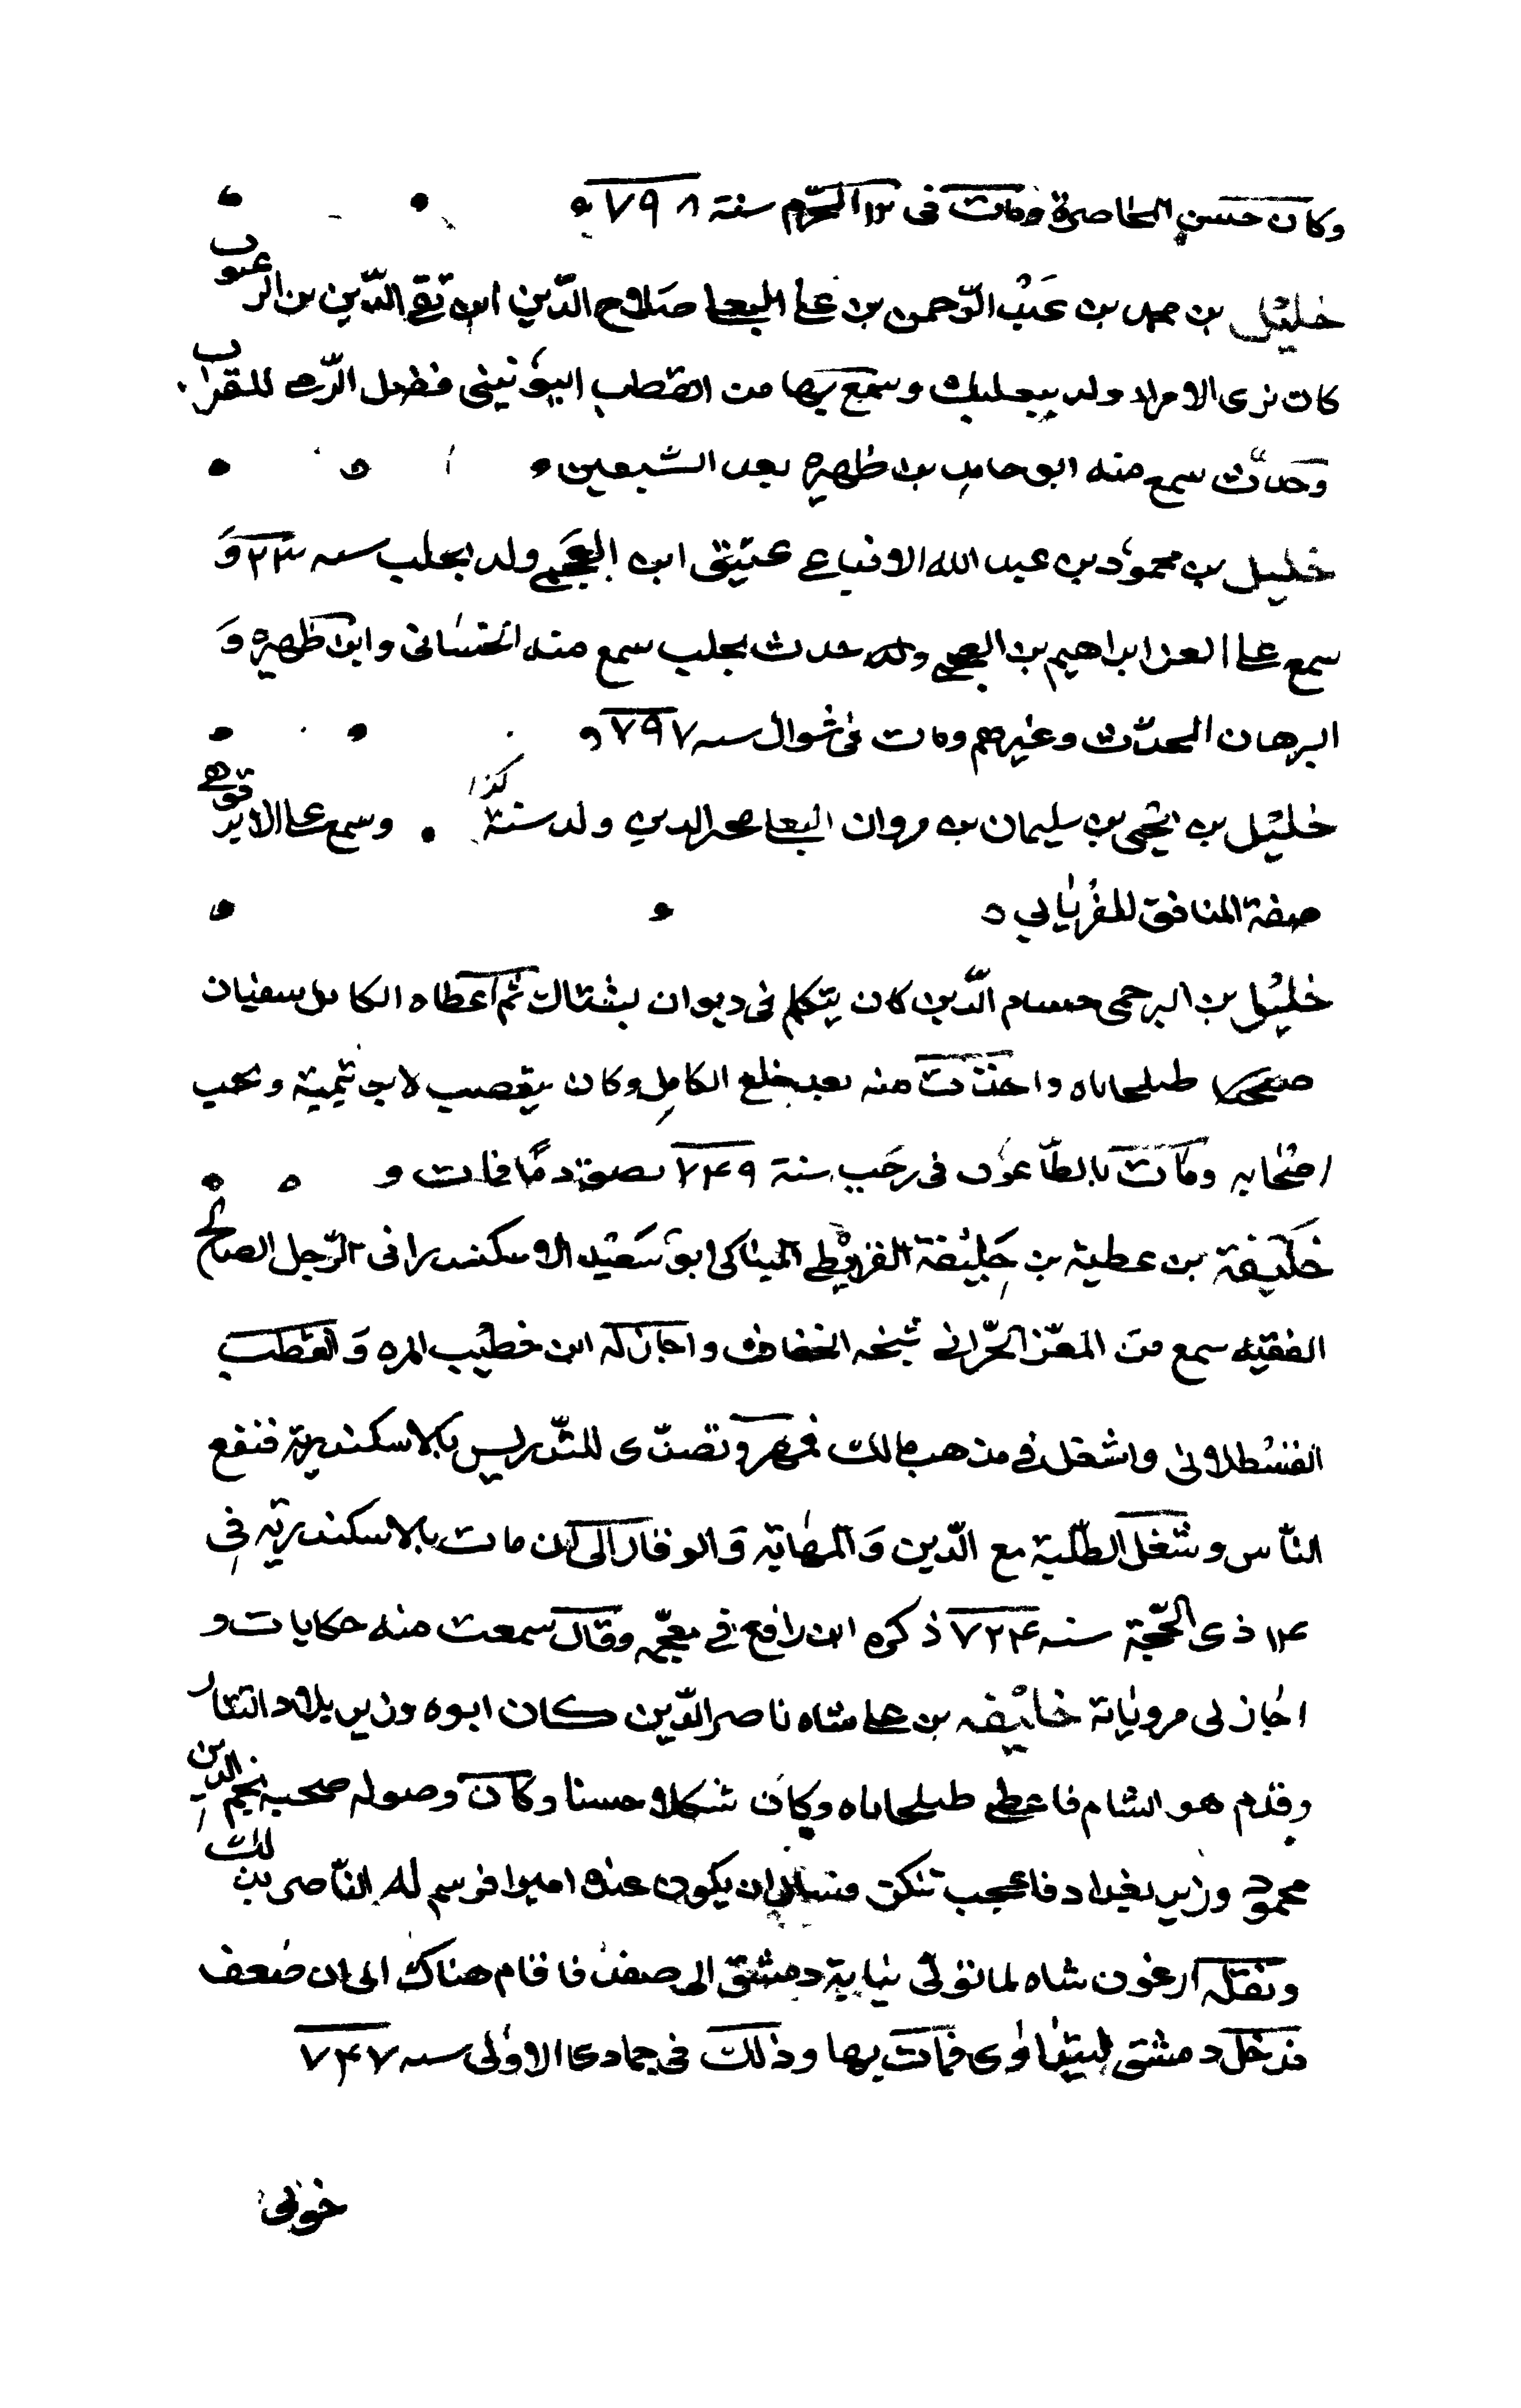 وكان حسن المحاضرة ومات فى المحرّم سنة ٧٩٨
خليل بن محمد بن عبد الرّحمن بن على البعلى صلاح الدّين ابن تقى الدّين بن الرعبوب
كان بزى الامراء ولد ببعلبك وسمع بها من القطب اليونينى فضل الرمى للقراب
وحدّث سمع منه ابو حامد بن ظهيره بعد السّبعين
خليل بن محمود بن عبد الله الاقباعى عتيق ابن العجمى ولد بحلب سنه ٢٣ و
سمع على العز ابراهيم بن العجمى وله حدث بحلب سمع منه وابن ظهيره و
البرهان المحدّث وغيرهم ومات فى شوال سنه ٧٩٧
خليل بن يحيى بن سليمان بن مروان البعلى الدين ولد سنة كذا وسمع على الابرقوهى
صفة المنافق للفريابي
خليل بن البرجمى حسام الدّين كان يتكلم فى ديوان بشتاك ثم اعطاه الكامل سفيان
طبلخاناه واخذت منه بعد خلع الكامل وكان يتعصب لابن تيمية ويحب
اصحابه ومات بالطّاعون فى رجب سنة ٧٤٩ بصق دمًا فمات
خليفة بن عطية بن خليفة المالكى ابو سعيد الاسكندرانى الرّجل الصالح
الفقيه سمع من المعزّ الحرّانى شيخه واجاز له ابن خطيب المزه والقطب
القسطلانى واشتغل فى مذهب مالك فمهر وتصدّى للتّدريس بالاسكندرية فنفع
النّاس وشغل الطّلبة مع الدّين والمهابة والوقار الى ان مات بالاسكندريّه فى
١٤ ذى الحجّة سنه ٧٢٤ ذكره ابن رافع فى معجمه وقال سمعت منه حكايات و
اجاز لى مروياته خليفه بن على شاه ناصر الدّين كان ابوه وزير بلاد التتار
وقدم هو الشام فاعطى طبلخاناه وكان شكلا حسنا وكان وصوله صحبة نجم الدين
محمود وزير بغداد فاعجب تنكز فسال ان يكون عنده اميرا فرسم له النّاصر بذلك
ونقله ارغون شاه لما تولّى نيابة دمشق الى صفد فاقام هناك الى ان ضعف
فدخل دمشق ليتداوى فمات بها وذلك فى جمادى الاولى سنه ٧٤٧